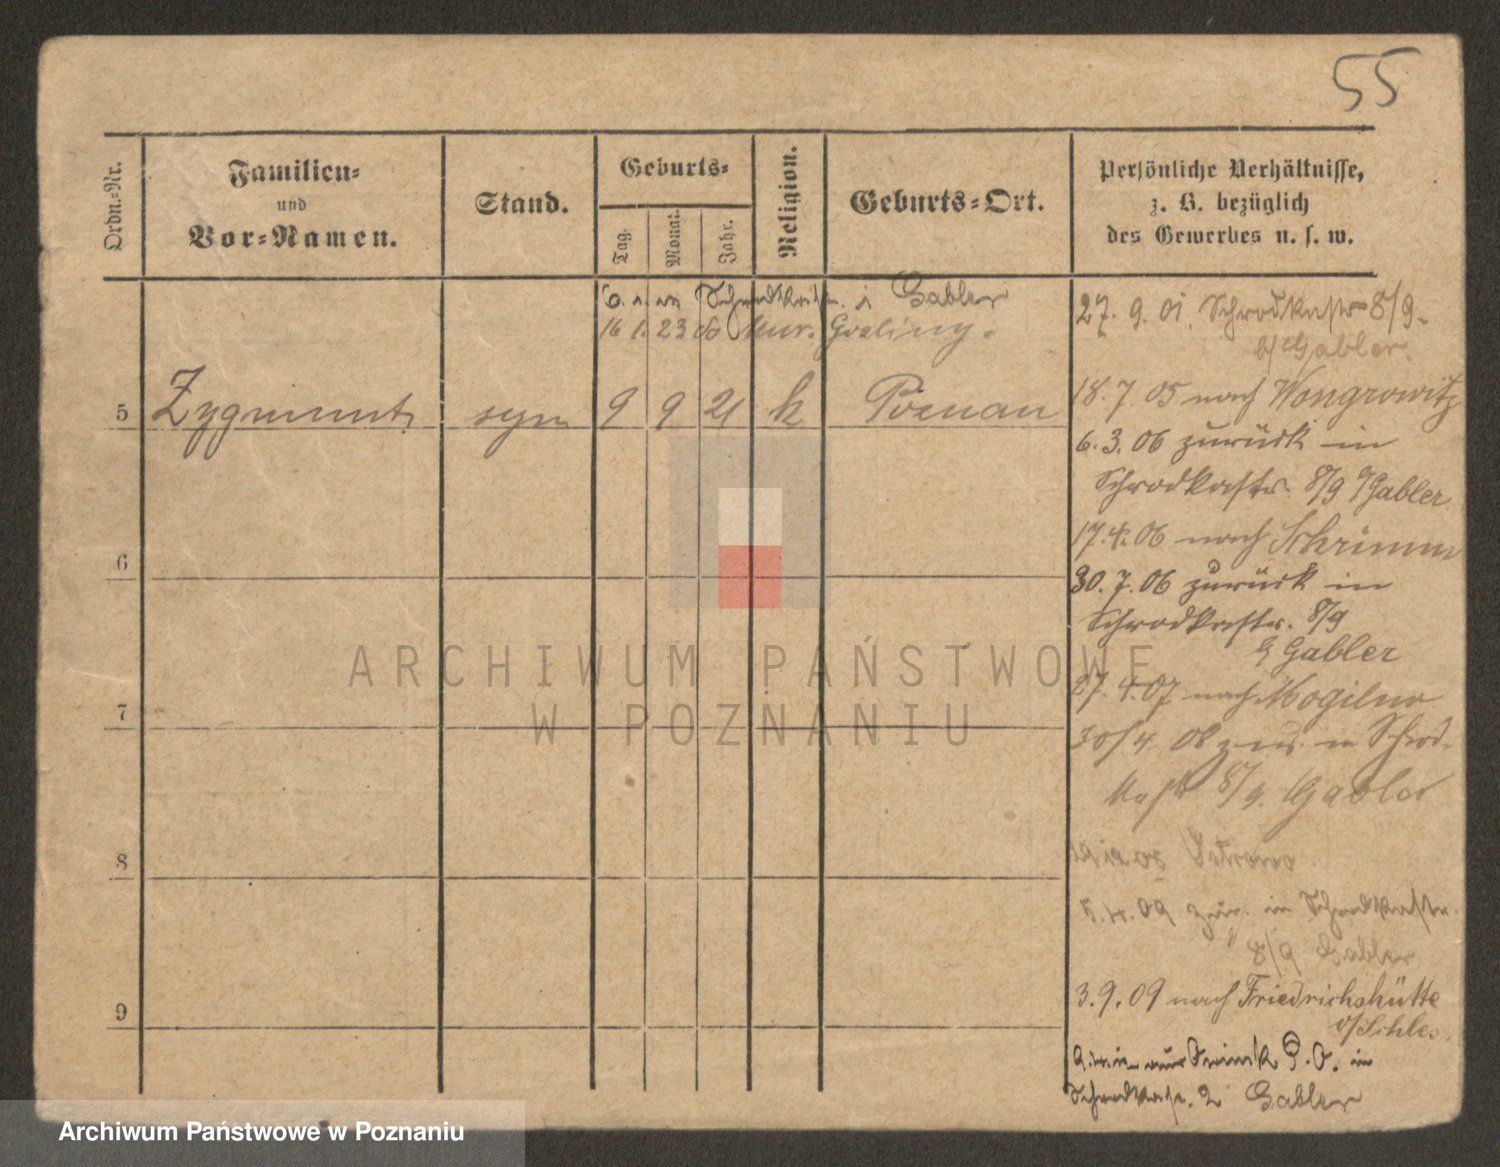 55
Ordn.-Nr.
Familien-
und
Vor-Namen.
Stand.
Geburts-
Tag.
Monat.
Jahr.
Religion.
Geburts-Ort.
Persönliche Verhältnisse,
z. B. bezüglich
des Gewerbes u. s. w.
Gabler
16 1. 23 Mur. Gosliny.
5 Zygmunt syn 9 9 21 k Poznań
6
7
8
9
27. 9. 01. Schrodkastr 8/9.
b/ Gabler.
18. 7. 05 nach Wongrowitz
6. 3. 06 zurück in
Schrodkastr. 8/9 b/Gabler
17. 4. 06 nach Schrimm
30. 7. 06 zurück in
Schrodkastr. 8/9
b/ Gabler
27. 4. 07 nach Mogilno
30/4 08 zur. in Schrod-
kastr 8/9. Gabler
5. 4. 09 zur. in Schrodkastr.
8/9 Gabler
3. 9. 09 nach Friedrichshütte
o/Schles.
P. O. in
Schrodkastr. 2 Gabler
ARCHIWUM PAŃSTWOWE
W POZNANIU
Archiwum Państwowe w Poznaniu